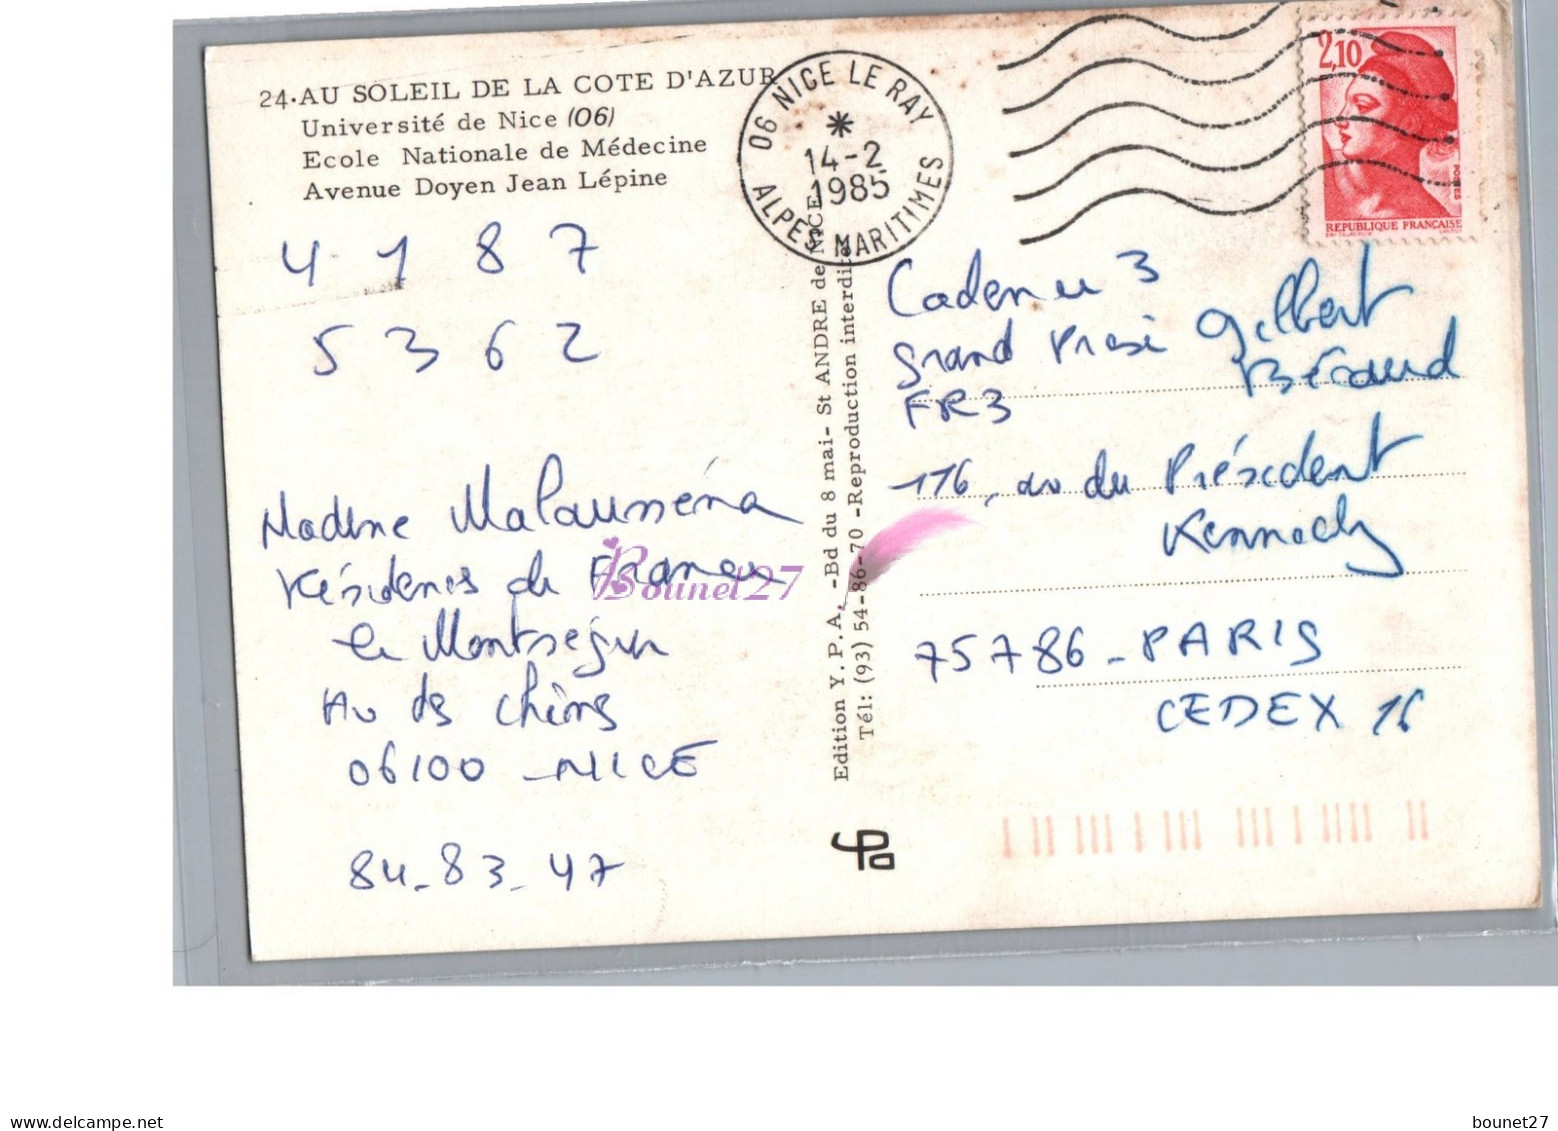 24·AU SOLEIL DE LA COTE D'AZUR
Université de Nice (06)
Ecole Nationale de Médecine
Avenue Doyen Jean Lépine
06 NICE LE RAY
14-2
1985
ALPES MARITIMES
2,10
POSTES
REPUBLIQUE FRANÇAISE
4 1 8 7
5 3 6 2
Malausséna
Résidences de France
Le Montségur
Av des chênes
06100 - NICE
84-83-47
Edition Y.P.A. -Bd du 8 mai- St ANDRE de NICE
Tél: (93) 54-86-70 -Reproduction interdite
3
Grand Prix Gilbert
Bécaud
FR3
116, av du Président
Kennedy
75786 - PARIS
CEDEX 16
Bounet'27
delcampe.net
bounet27